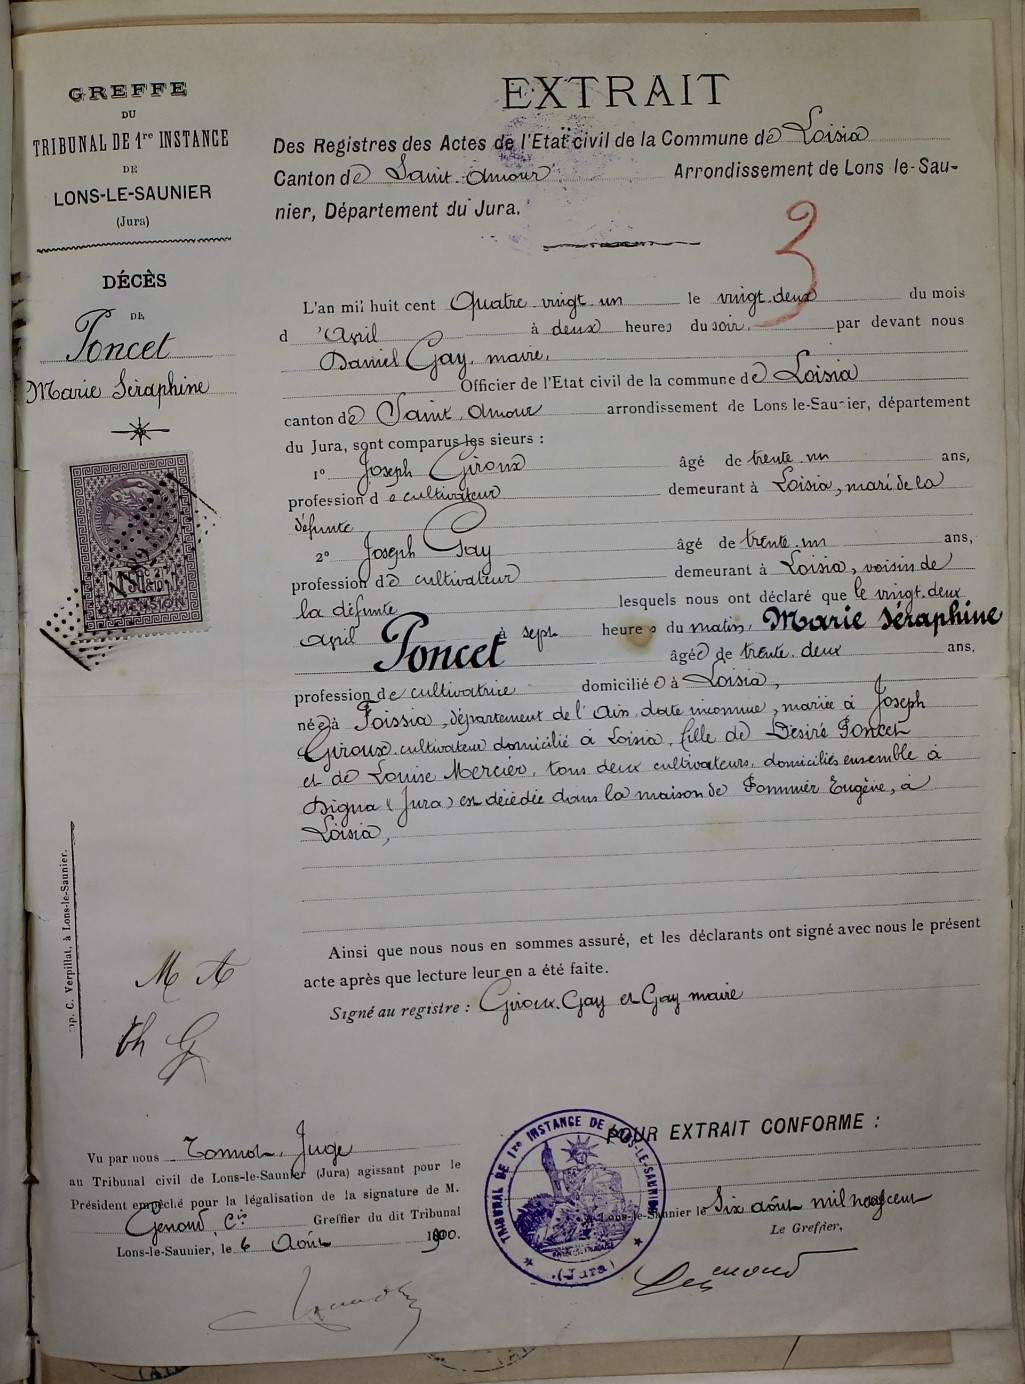 GREFFE
DU
TRIBUNAL DE 1re INSTANCE
DE
LONS-LE-SAUNIER
(Jura)
DÉCÈS
DE
Poncet
Marie Séraphine
DIMENSION
Imp. C. Verpillat, à Lons-le-Saunier.
EXTRAIT
Des Registres des Actes de l'Etat civil de la Commune de Loisia
Canton de Saint-Amour Arrondissement de Lons-le-Sau-
nier, Département du Jura.
3
L'an mil huit cent Quatre vingt un le vingt-deux du mois
d 'Avril à deux heures du soir, par devant nous
Daniel Gay, maire,
Officier de l'Etat civil de la commune de Loisia
canton de Saint-Amour arrondissement de Lons le-Saunier, département
du Jura, sont comparus les sieurs :
1º Joseph Giroux âgé de trente-un ans,
profession de cultivateur demeurant à Loisia, mari de la
défunte
2º Joseph Gay âgé de trente-un ans,
profession de cultivateur demeurant à Loisia, voisin de
la défunte lesquels nous ont déclaré que le vingt-deux
avril à sept heures du matin, Marie Séraphine
Poncet âgée de trente-deux ans,
profession de cultivatrice domiciliée à Loisia,
née à Foissia, département de l'Ain, date inconnue, mariée à Joseph
Giroux cultivateur domicilié à Loisia, fille de Désiré Poncet
et de Louise Mercier, tous deux cultivateurs, domiciliés ensemble à
Digna (Jura) est décédée dans la maison de Pommier Eugène, à
Loisia,
Ainsi que nous nous en sommes assuré, et les déclarants ont signé avec nous le présent
acte après que lecture leur en a été faite.
Signé au registre : Giroux, Gay et Gay maire
M A
th G
Vu par nous Juge
au Tribunal civil de Lons-le-Saunier (Jura) agissant pour le
Président empêché pour la légalisation de la signature de M.
Greffier du dit Tribunal
Lons-le-Saunier, le 6 Août 1900.
POUR EXTRAIT CONFORME :
Lons-le-Saunier le Six août mil neuf cent
Le Greffier,
TRIBUNAL DE 1re INSTANCE DE LONS-LE-SAUNIER
(Jura)